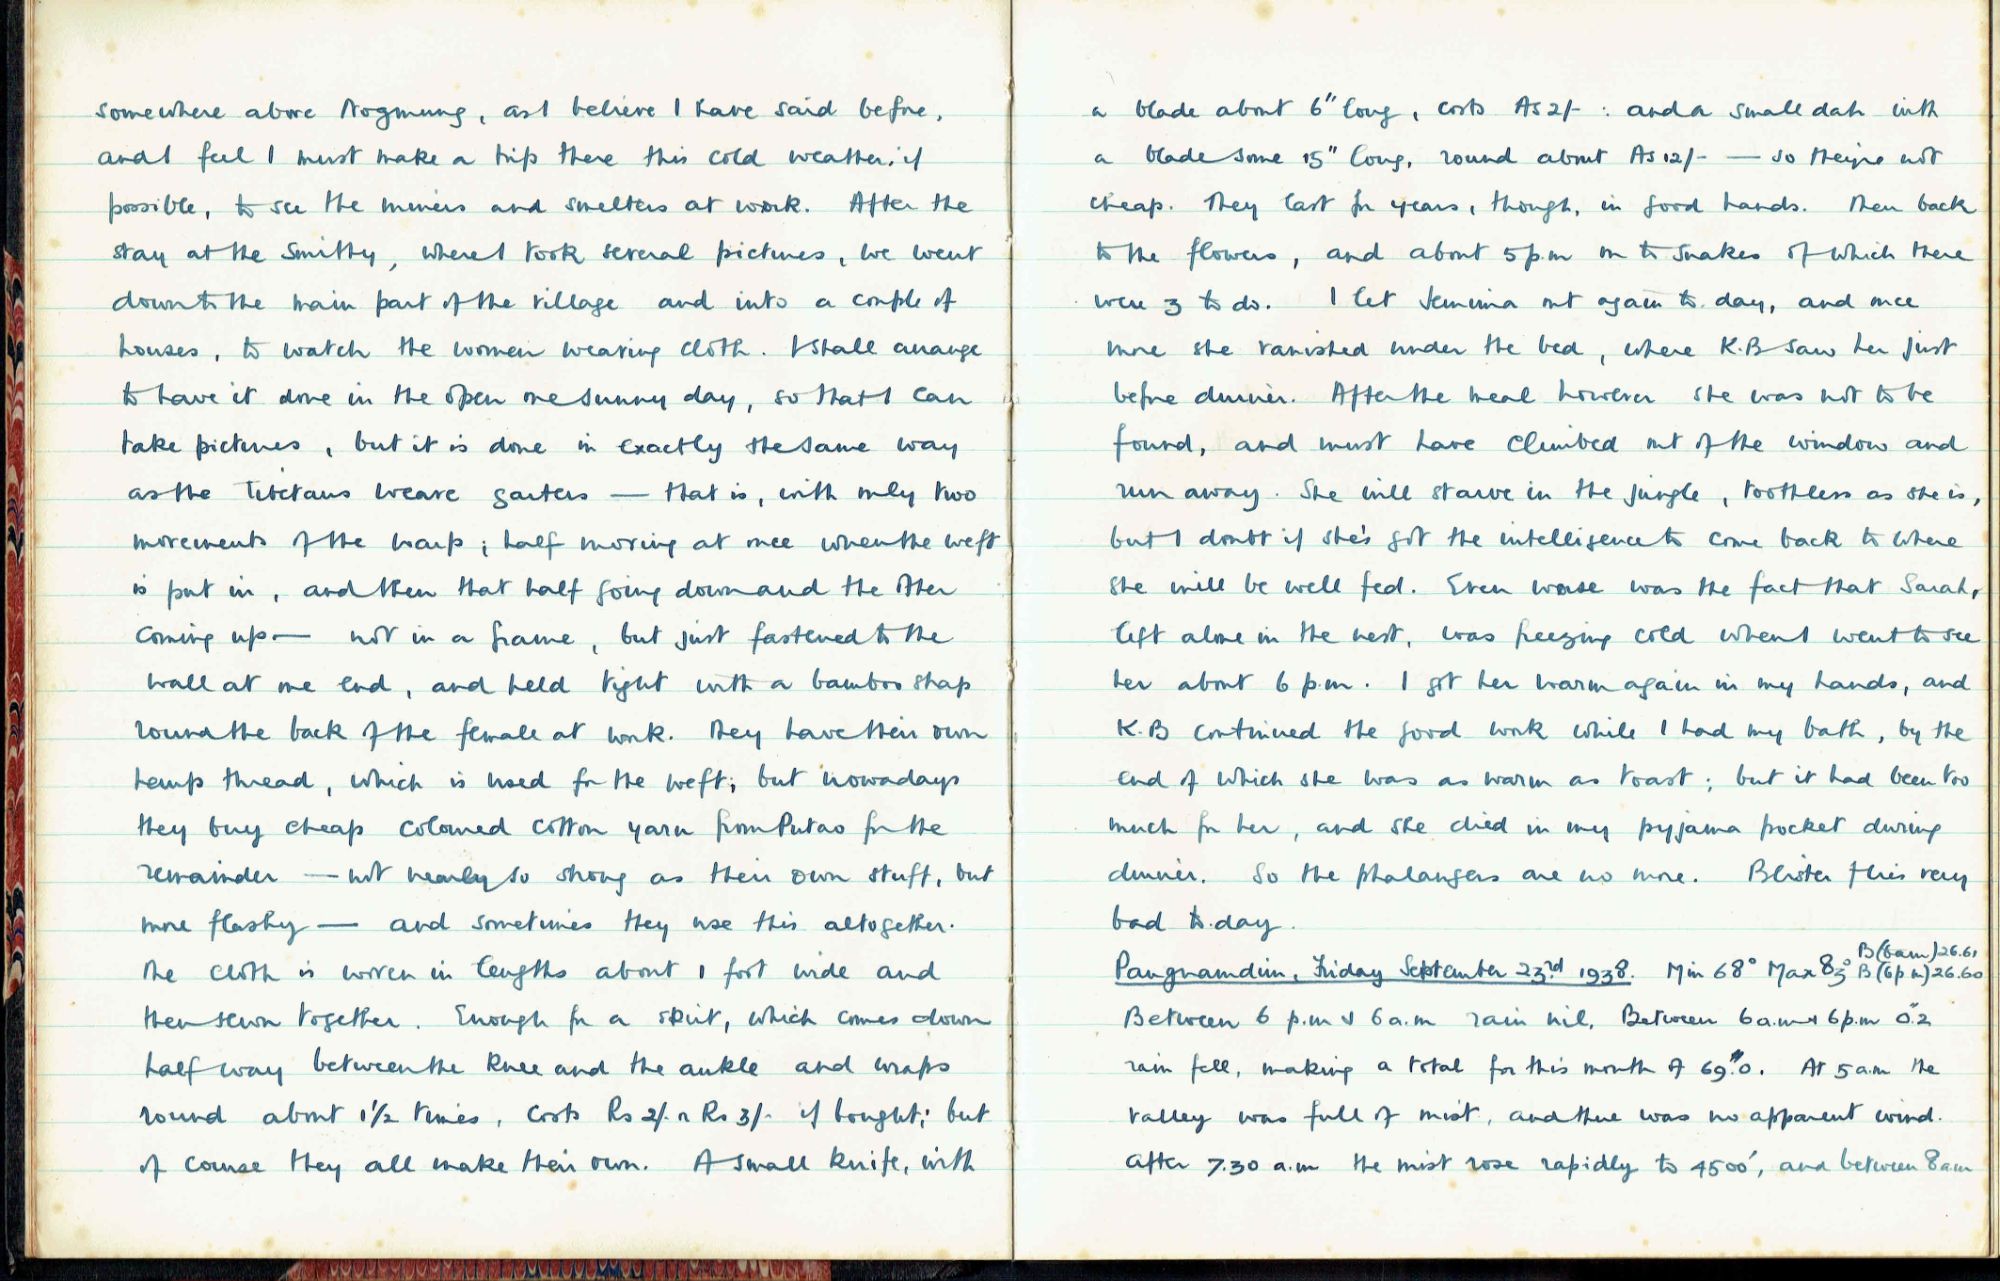 somewhere above Nogmung, as I believe I have said before,
and I feel I must make a trip there this cold weather, if
possible, to see the miners and smelters at work. After the
stay at the smithy, where I took several pictures, we went
down to the main part of the village and into a couple of
houses, to watch the women weaving cloth. I shall arrange
to have it done in the open one sunny day, so that I can
take pictures, but it is done in exactly the same way
as the Tibetans weave gaiters — that is, with only two
movements of the warp; half moving at once when the weft
is put in, and then that half going down and the other
coming up — not in a frame, but just fastened to the
wall at one end, and held tight with a bamboo strap
round the back of the female at work. They have their own
hemp thread, which is used for the weft; but nowadays
they buy cheap coloured cotton yarn from Putao for the
remainder — not nearly so strong as their own stuff, but
more flashy — and sometimes they use this altogether.
The cloth is woven in lengths about 1 foot wide and
then sewn together. Enough for a skirt, which comes down
half way between the knee and the ankle and wraps
round about 1½ times, costs Rs 2/- or Rs 3/- if bought; but
of course they all make their own. A small knife, with
a blade about 6" long, costs As 2/- : and a small dah with
a blade some 15" long, round about As 12/- — so they're not
cheap. They last for years, though, in good hands. Then back
to the flowers, and about 5 p.m on to snakes of which there
were 3 to do. I let Jemima out again to.day, and once
more she vanished under the bed, where K.B saw her just
before dinner. After the meal however she was not to be
found, and must have climbed out of the window and
run away. She will starve in the jungle, toothless as she is,
but I doubt if she's got the intelligence to come back to where
she will be well fed. Even worse was the fact that Sarah,
left alone in the nest, was freezing cold when I went to see
her about 6 p.m. I got her warm again in my hands, and
K.B continued the good work while I had my bath, by the
end of which she was as warm as toast; but it had been too
much for her, and she died in my pyjama pocket during
dinner. So the phalangers are no more. Blister flies very
bad to.day.
Pangnamdim, Friday September 23rd 1938. Min 68° Max 83° B(6am) 26.61
B(6pm) 26.60
Between 6 p.m & 6 a.m rain nil. Between 6 a.m & 6 p.m 0".2
rain fell, making a total for this month of 69".0. At 5 a.m the
valley was full of mist, and there was no apparent wind.
After 7.30 a.m the mist rose rapidly to 4500', and between 8 am